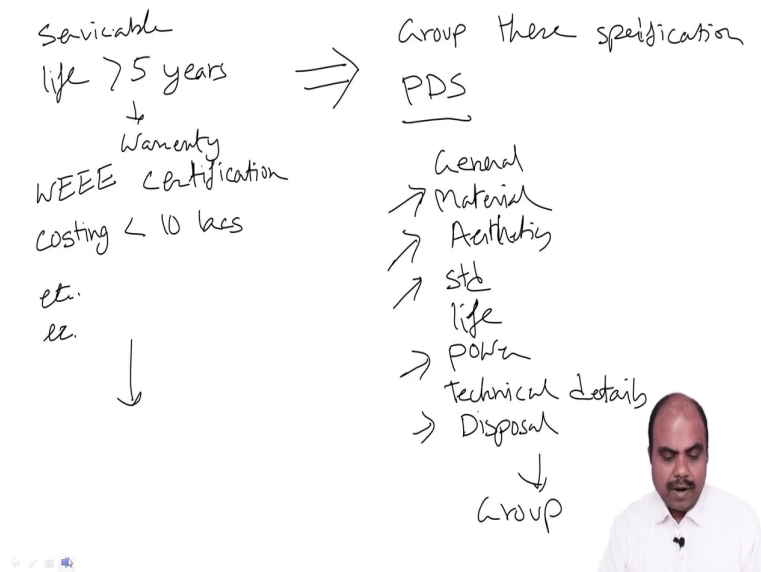 Servicable
life > 5 years
↓
Warrenty
WEEE certification
costing < 10 lacs
etc.
↓
⇒
Group these specification
PDS
General
→ Material
→ Aesthetics
→ Std
life
→ power
Technical details
→ Disposal
↓
Group